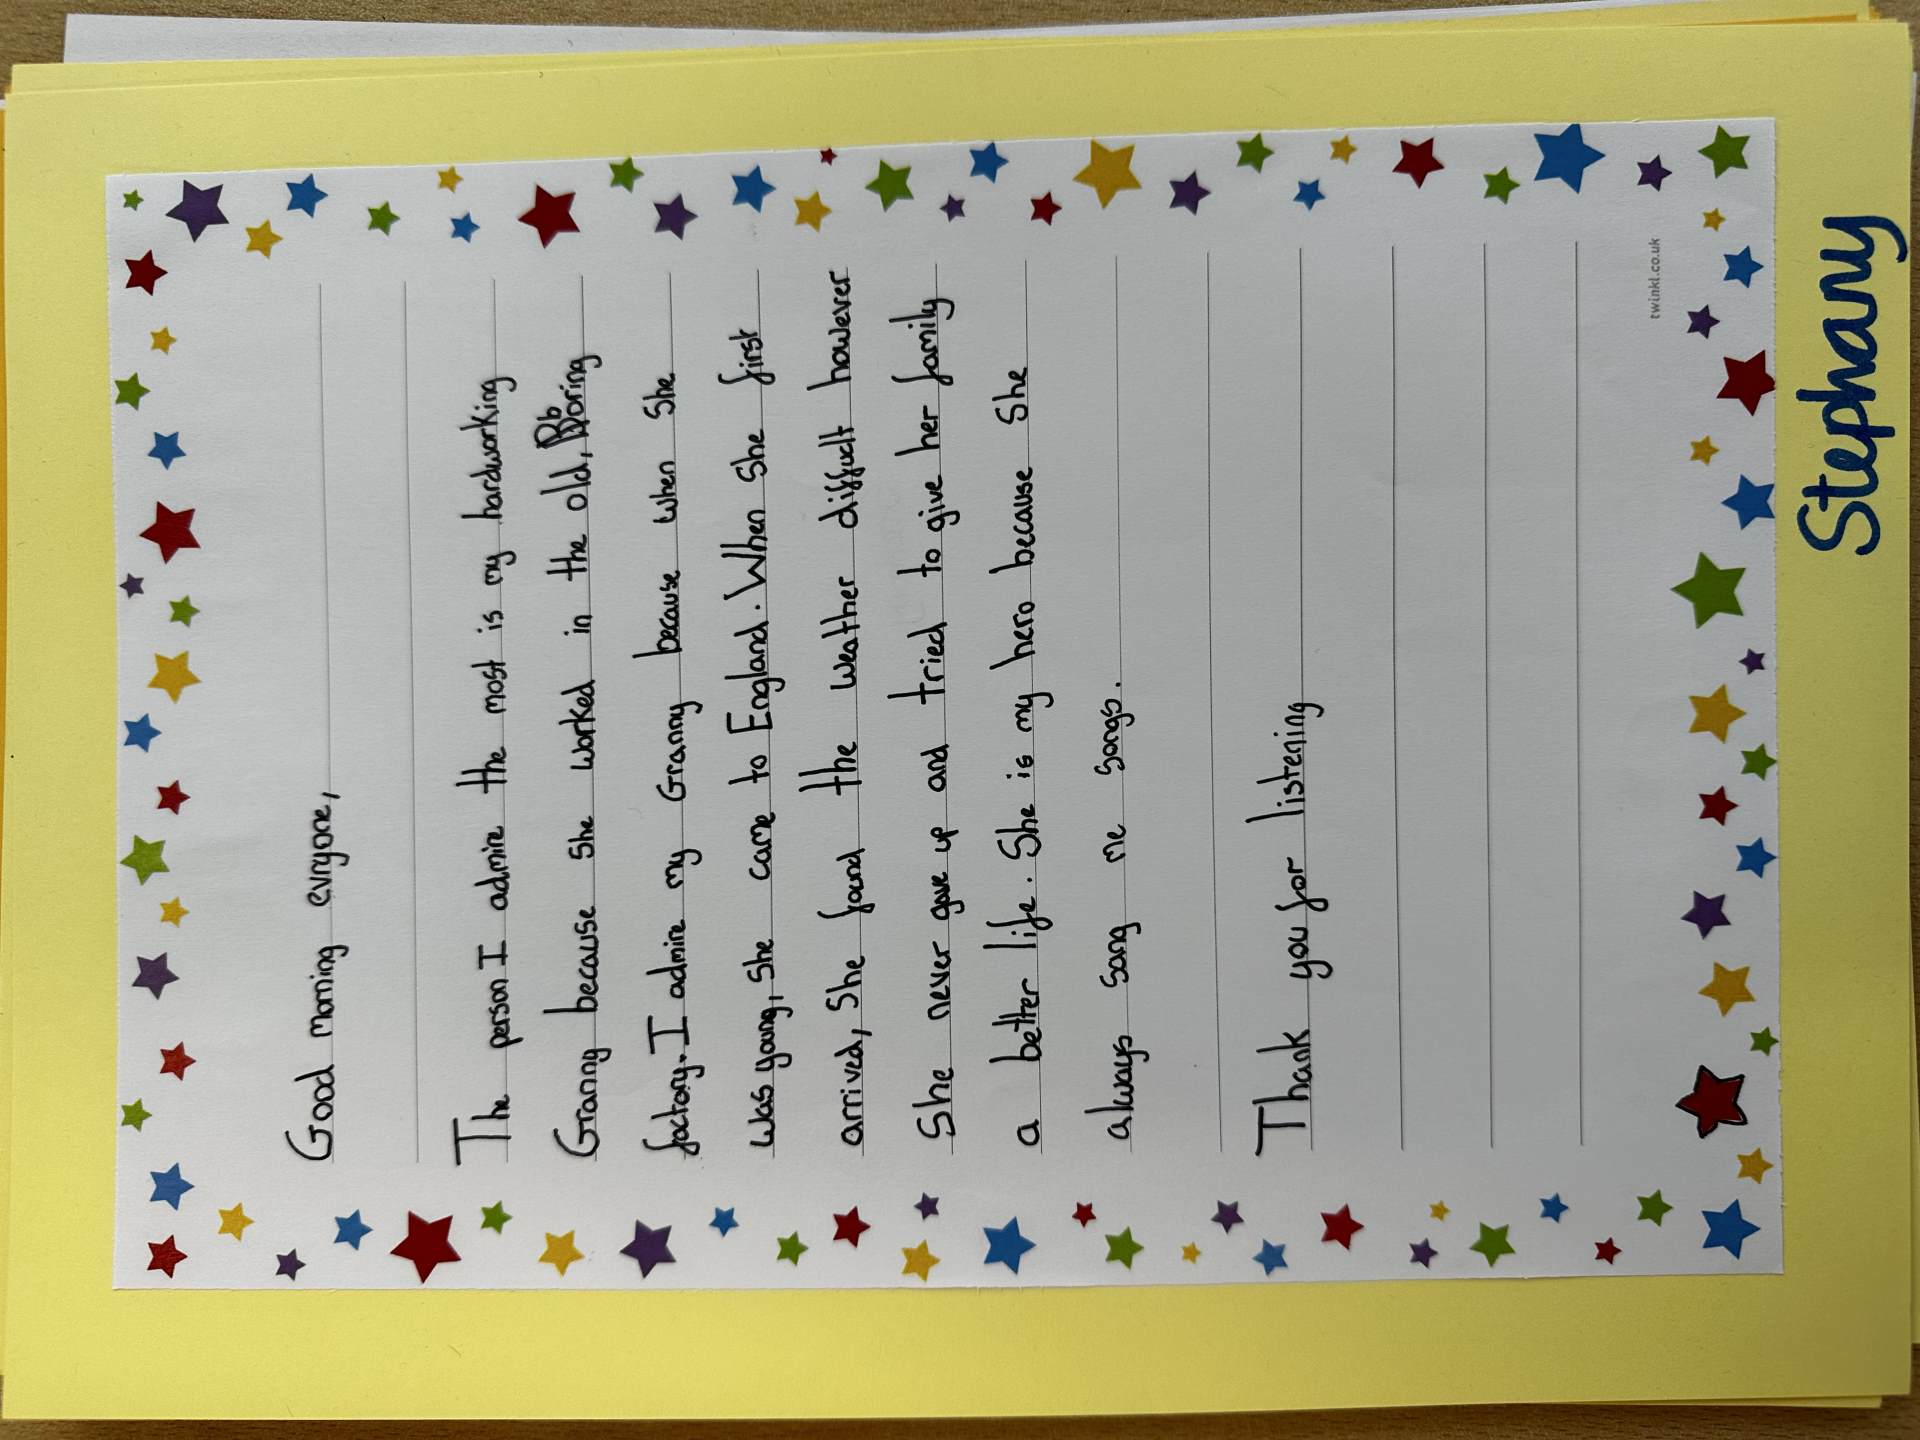 Good morning evryone,
The person I admire the most is my hardworking
Granny because she worked in the old, Boring
Bb
factory. I admire my Granny because when She
was young, she came to England. When She first
arrived, She found the weather difficult however
She never gave up and tried to give her family
a better life. She is my hero because She
always sang me songs.
Thank you for listening
twinkl.co.uk
Stephany